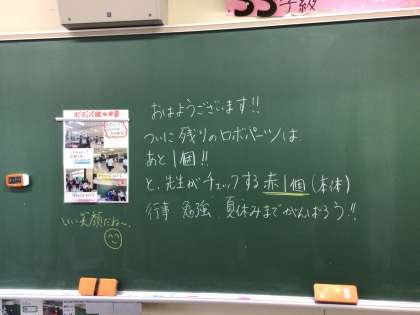 おはようございます!!
ついに残りのロボパーツは
あと1個!!
と、先生がチェックする赤1個(本体)
行事 勉強 夏休みまでがんばろう!!
いい笑顔だね〜。
学級